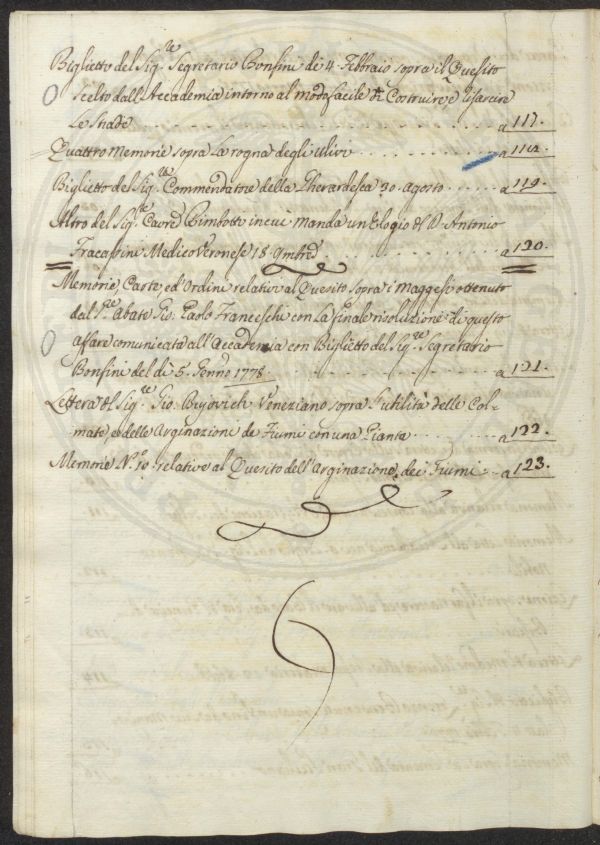 Biglietto del Sig.re Segretario Bonfini de 4. Febbraio sopra il Quesito
scelto dall'Accademia intorno al modo facile di Costruire, e
Le Strade . . . . . . a 117.
Quattro Memorie sopra La rogna degli Ulivi . . . . . . a 118.
Biglietto del Sig.re Commendatore della Gherardesca 30. agosto . . . . . a 119.
Altro del Sig.re Cavre Bimbotti in cui manda un Elogio del D. Antonio
Fracassini Medico Veronese 18. 9mbre . . . . . . a 120.
Memorie, Carte ed Ordini relativi al Quesito sopra i Maggesi ottenuto
dal S.re Abate Gio. Paolo Franceschi con La finale risoluzione di questo
affare comunicata all'Accademia con Biglietto del Sig.re Segretario
Bonfini del dì 5. Genno 1778. . . . . . . a 121.
Lettera del Sig.re Gio. Bujovich Veneziano sopra l'utilità delle Col-
mate, e delle Arginazioni de Fiumi con una Pianta . . . . . . a 122.
Memorie N.o 10. relative al Quesito dell'Arginazione dei Fiumi . . a 123.